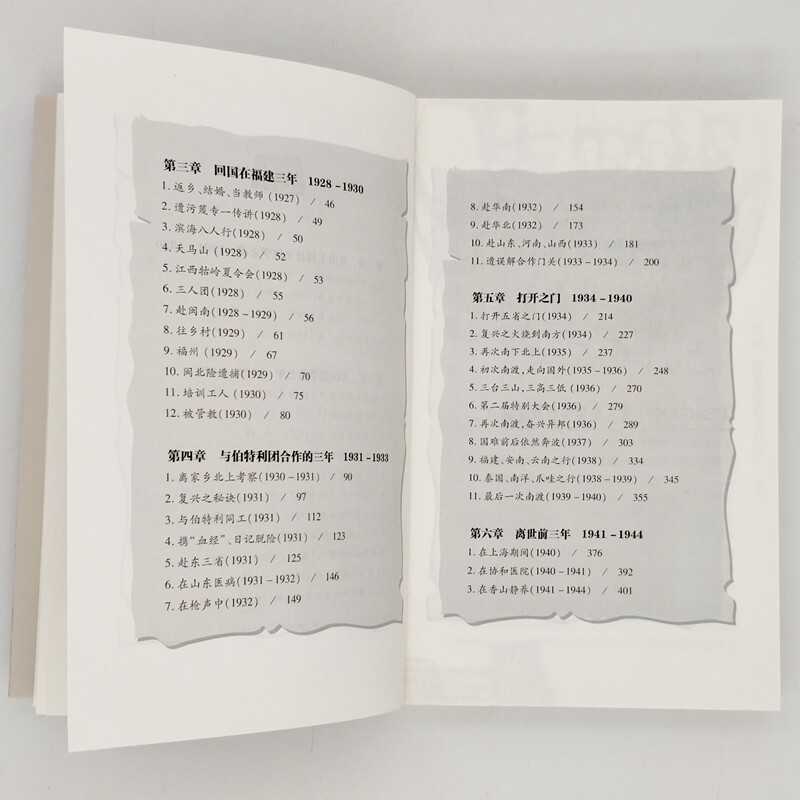 第三章 回国在福建三年 1928-1930
1. 返乡、结婚、当教师 (1927) / 46
2. 遭污蔑专一传讲(1928) / 49
3. 滨海八人行(1928) / 50
4. 天马山 (1928) / 52
5. 江西牯岭夏令会(1928) / 53
6. 三人团(1928) / 55
7. 赴闽南(1928-1929) / 56
8. 往乡村(1929) / 61
9. 福州 (1929) / 67
10. 闽北险遭捕(1929) / 70
11. 培训工人 (1930) / 75
12. 被管教(1930) / 80
第四章 与伯特利团合作的三年 1931-1933
1. 离家乡北上考察(1930-1931) / 90
2. 复兴之秘诀(1931) / 97
3. 与伯特利同工(1931) / 112
4. 携“血经”、日记脱险(1931) / 123
5. 赴东三省(1931) / 125
6. 在山东医病(1931-1932) / 146
7. 在枪声中(1932) / 149
8. 赴华南(1932) / 154
9. 赴华北(1932) / 173
10. 赴山东、河南、山西(1933) / 181
11. 遭误解合作门关(1933-1934) / 200
第五章 打开之门 1934-1940
1. 打开五省之门(1934) / 214
2. 复兴之火烧到南方(1934) / 227
3. 再次南下北上(1935) / 237
4. 初次南渡,走向国外(1935-1936) / 248
5. 三台三山,三高三低 (1936) / 270
6. 第二届特别大会(1936) / 279
7. 再次南渡,奋兴异邦(1936) / 289
8. 国难前后依然奔波(1937) / 303
9. 福建、安南、云南之行(1938) / 334
10. 泰国、南洋、爪哇之行(1938-1939) / 345
11. 最后一次南渡(1939-1940) / 355
第六章 离世前三年 1941-1944
1. 在上海期间(1940) / 376
2. 在协和医院(1940-1941) / 392
3. 在香山静养(1941-1944) / 401